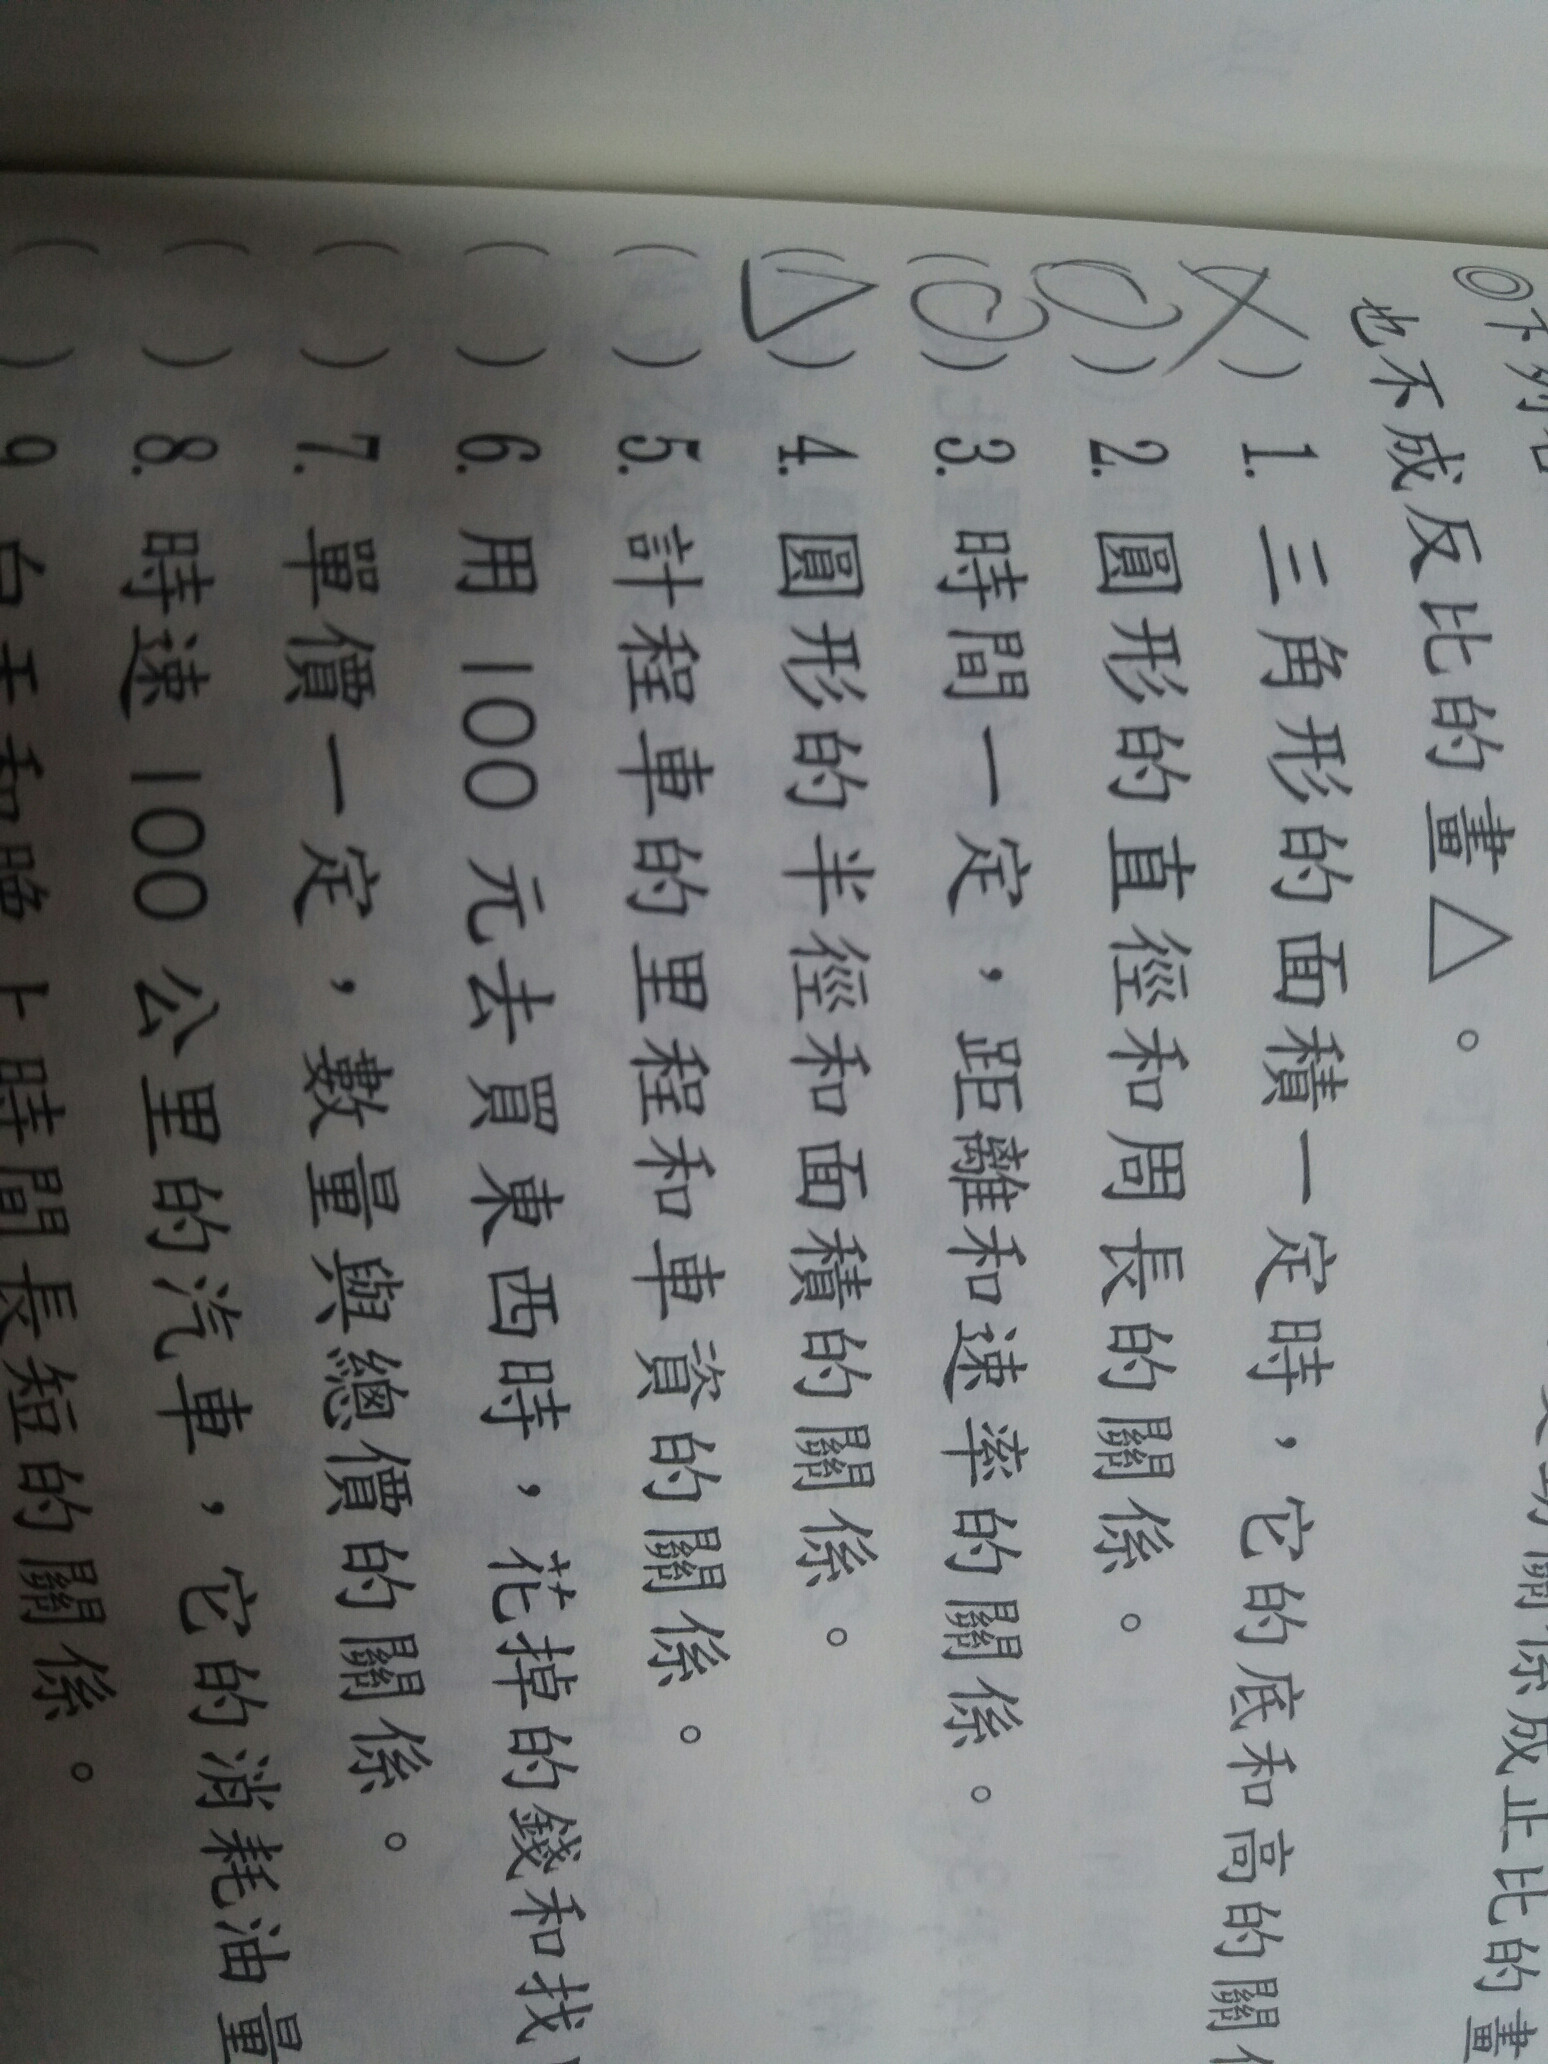 ◎下列
關係成正比的畫
也不成反比的畫△。
(╳) 1. 三角形的面積一定時,它的底和高的關
(○) 2. 圓形的直徑和周長的關係。
(○) 3. 時間一定,距離和速率的關係。
(△) 4. 圓形的半徑和面積的關係。
( ) 5. 計程車的里程和車資的關係。
( ) 6. 用 100 元去買東西時,花掉的錢和找
( ) 7. 單價一定,數量與總價的關係。
( ) 8. 時速 100 公里的汽車,它的消耗油量
( ) 9. 白天和晚上時間長短的關係。